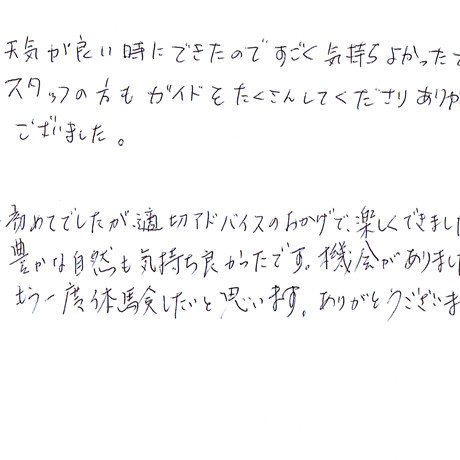 天気が良い時にできたのですごく気持ちよかったで
スタッフの方もガイドをたくさんしてくださりありが
ございました。
初めてでしたが、適切アドバイスのおかげで、楽しくできまし
豊かな自然も気持ち良かったです。機会がありまし
もう一度体験したいと思います。ありがとうございま